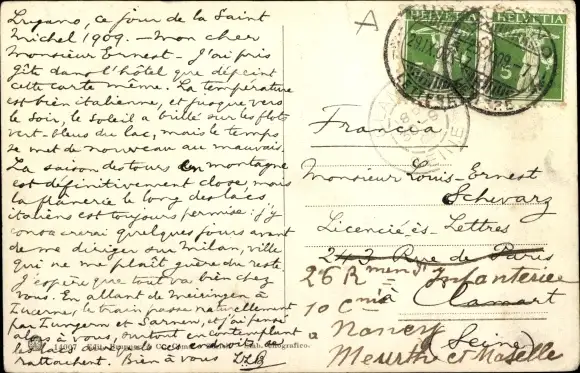 Lugano, ce jour de la Saint
Michel 1909. — Mon cher
Monsieur Ernest — J'ai pris
gîte dans l'hôtel que dépeint
cette carte même. La température
est bien italienne, et jusque vers
le soir, le soleil a brillé sur les flots
vert-bleus du lac, mais le temps
se met de nouveau au mauvais.
La saison des tours en montagne
est définitivement close, mais
la flânerie le long des lacs
italiens est toujours permise: j'y
consacrerai quelques jours avant
de me diriger sur Milan, ville
qui ne me plaît guère du reste.
J'espère que tout va bien chez
vous. En allant de Meiringen à
Lucerne, le train passe naturellement
par Lungern et Sarnen, et j'ai pensé
alors à vous, surtout en contemplant
les lacs auxquels ces endroits se
rattachent. Bien à vous
A
HELVETIA
HELVETIA
5
Francia
Monsieur Louis-Ernest
Schvarz
Licencié ès-Lettres
243 Rue de Paris
26 Rment d'Infanterie
à Clamart
10 Cnie
(Seine)
à Nancy
Meurthe et Moselle